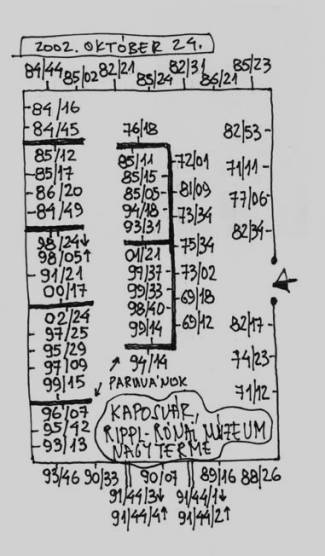 2002. OKTÓBER 24.
84/44 85/02 82/21 83/24 82/31 86/21 85/23
84/16
84/45
85/12
85/17
86/20
84/49
98/24↓
98/05↑
91/21
00/17
02/24
97/25
95/29
97/09
99/15
96/07
95/42
93/13
76/18
85/11
85/15
85/05
94/18
93/31
01/21
97/37
99/33
98/40
99/14
94/14
72/01
81/09
73/34
75/34
73/02
69/18
69/12
82/53
71/11
77/06
82/34
82/17
74/23
71/12
PARAVÁNOK
KAPOSVÁR,
RIPPL-RÓNAI MÚZEUM
NAGYTERME
93/46 90/33 90/07 89/16 88/26
91/44/3↓ 91/44/1↓
91/44/4↑ 91/44/2↑